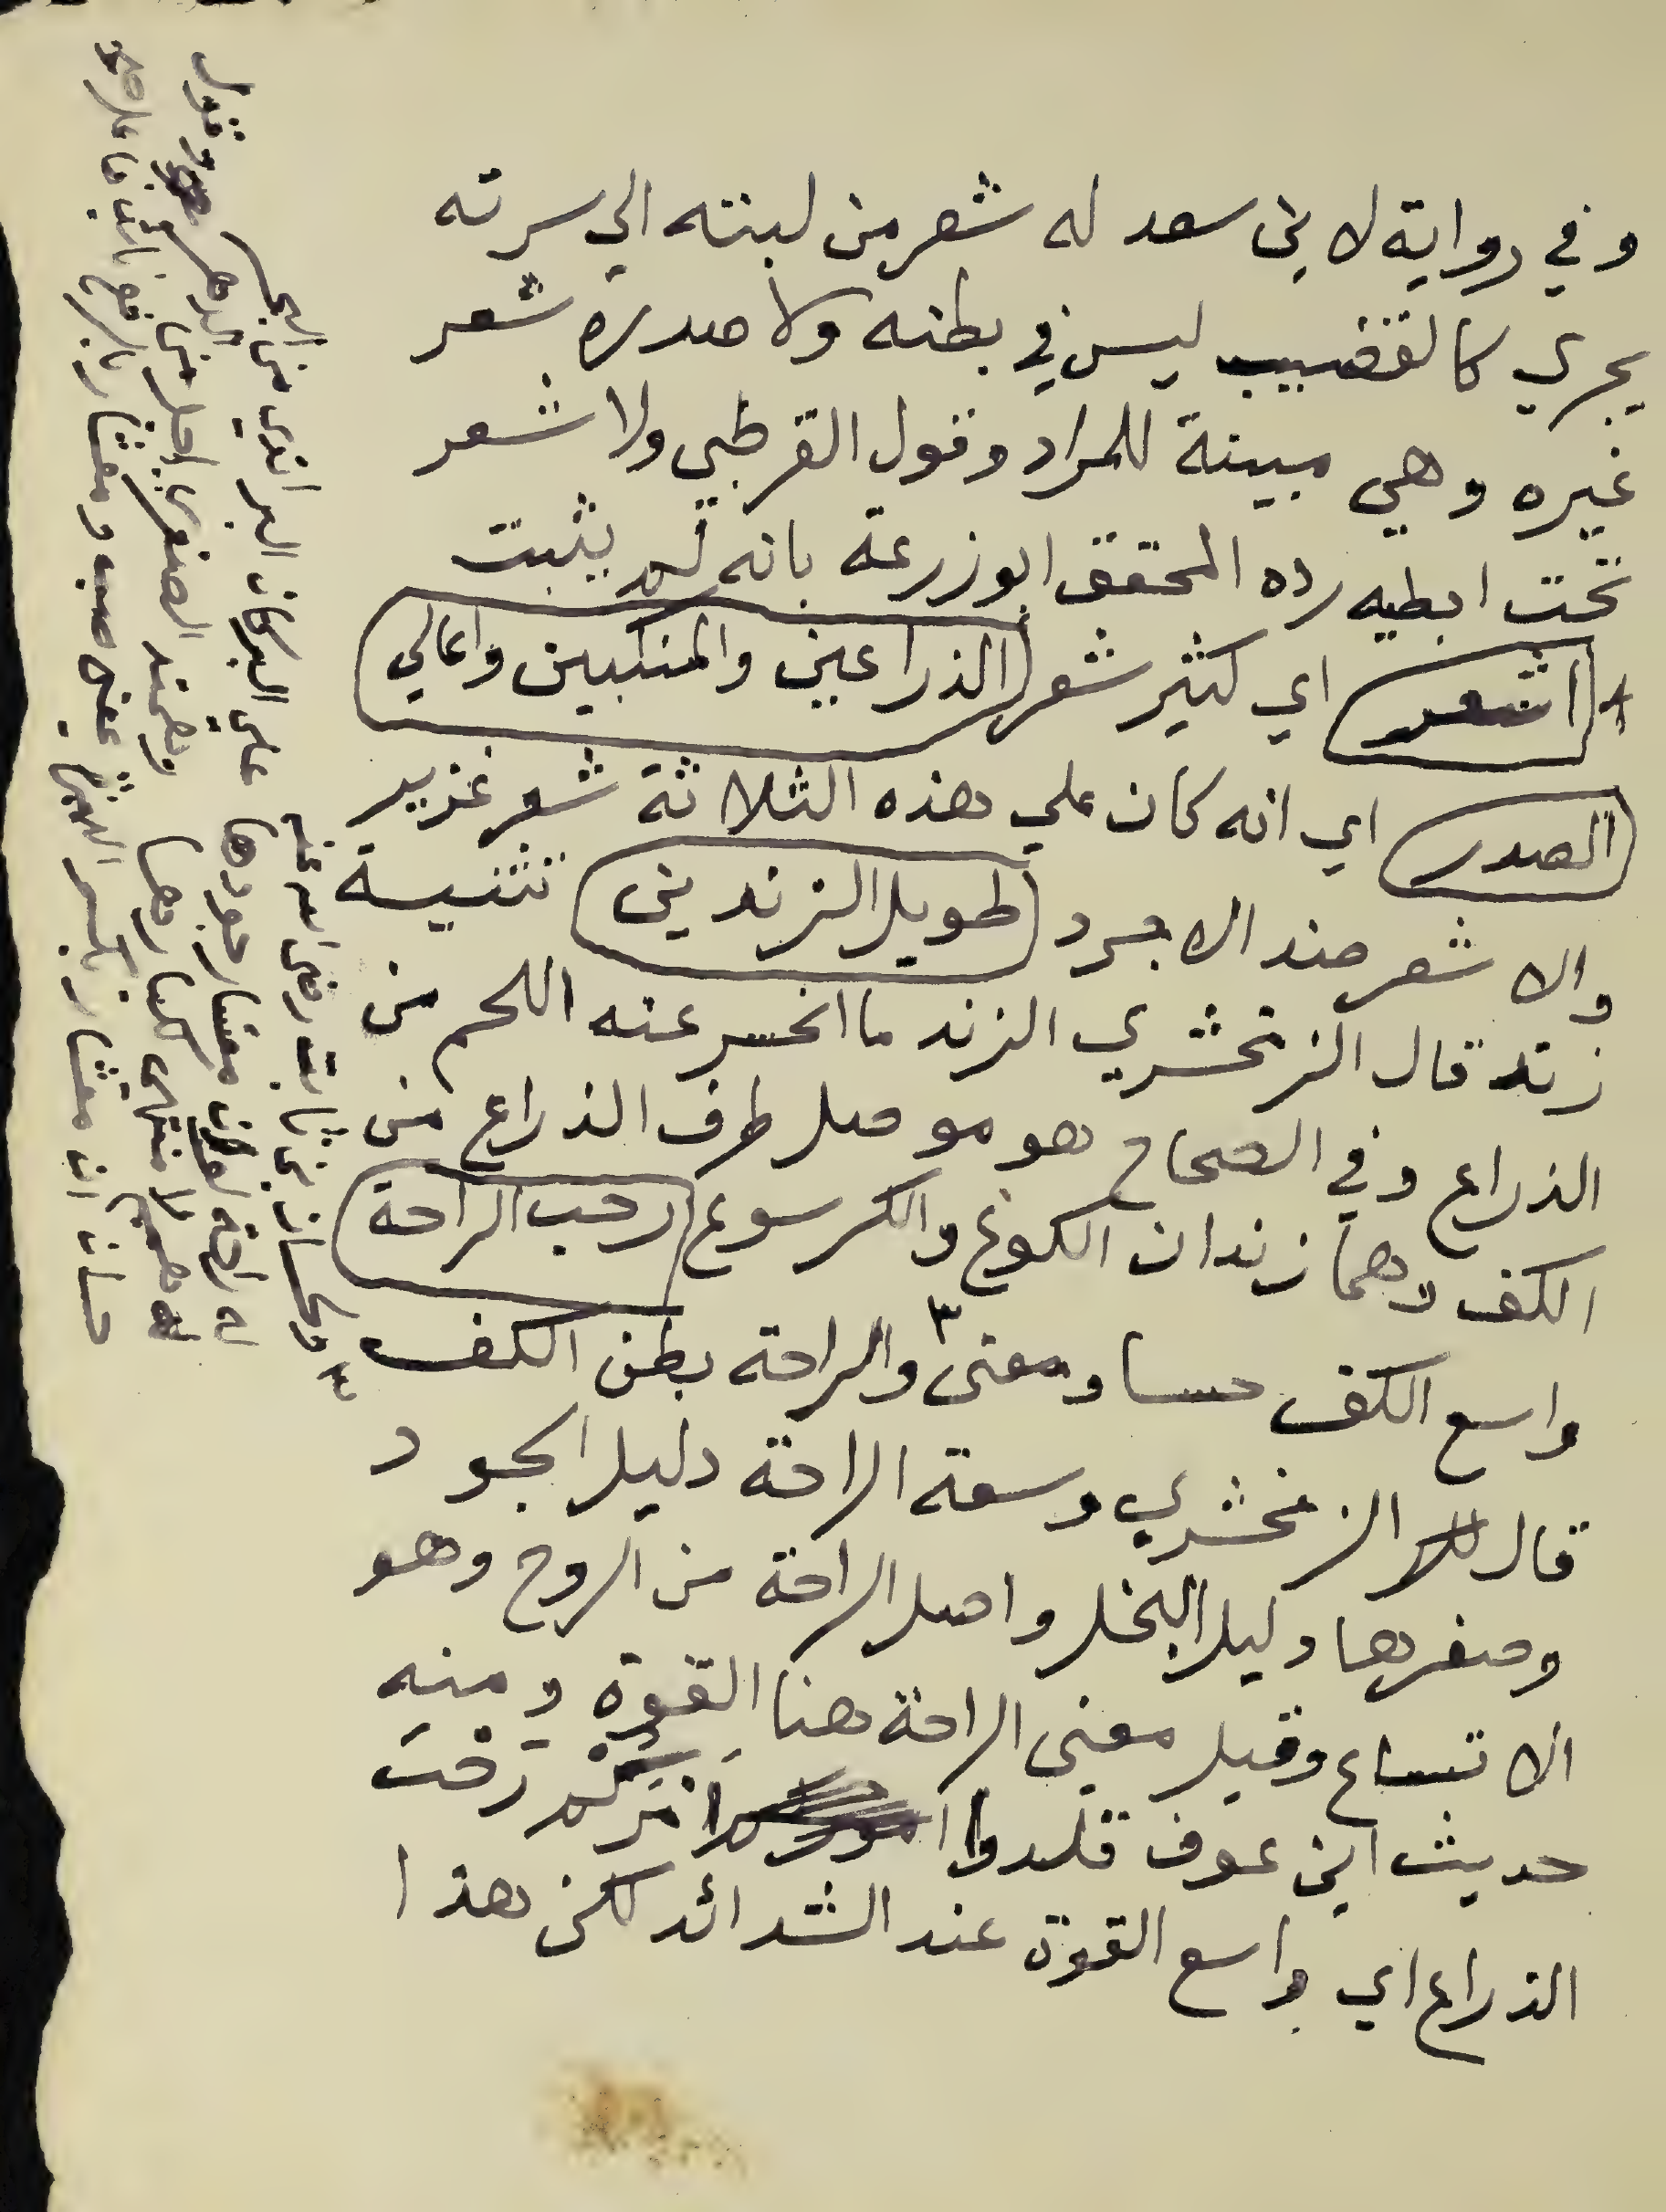 وفي رواية لابن سعد له شعر من لبته الي سرته
يجري كالقضيب ليس في بطنه ولا صدره شعر
غيره وهي مبينة للمراد وقول القرطبي ولا شعر
تحت ابطيه رده المحقق ابو زرعة بانه لم يثبت
اشعر اي كثير شعر الذراعين والمنكبين واعالي
الصدر اي انه كان علي هذه الثلاثة شعر غزير
والاشعر ضد الاجرد طويل الزندين تثنية
زند قال الزمخشري الزند ما انحسر عنه اللحم من
الذراع وفي الصحاح هو موصل طرف الذراع من
الكف وهما زندان الكوع والكرسوع رحب الراحة
واسع الكف حسا ومعنى ٣ والراحة بطن الكف
قال الزمخشري وسعة الراحة دليل الجود
وصغرها دليل البخل واصل الراحة من الروح وهو
الاتساع وقيل معنى الراحة هنا القوة ومنه
حديث ابن عوف قلدوا امركم رحب
الذراع اي واسع القوة عند الشدائد لكن هذا
٣ وحسان بن ثابت رضي الله عنه
له راحة لو ان معشار جودها علي البر كان البر اندى من البحر
له همم لا منتهى لكبارها وهمته الصغرى اجل من الدهر